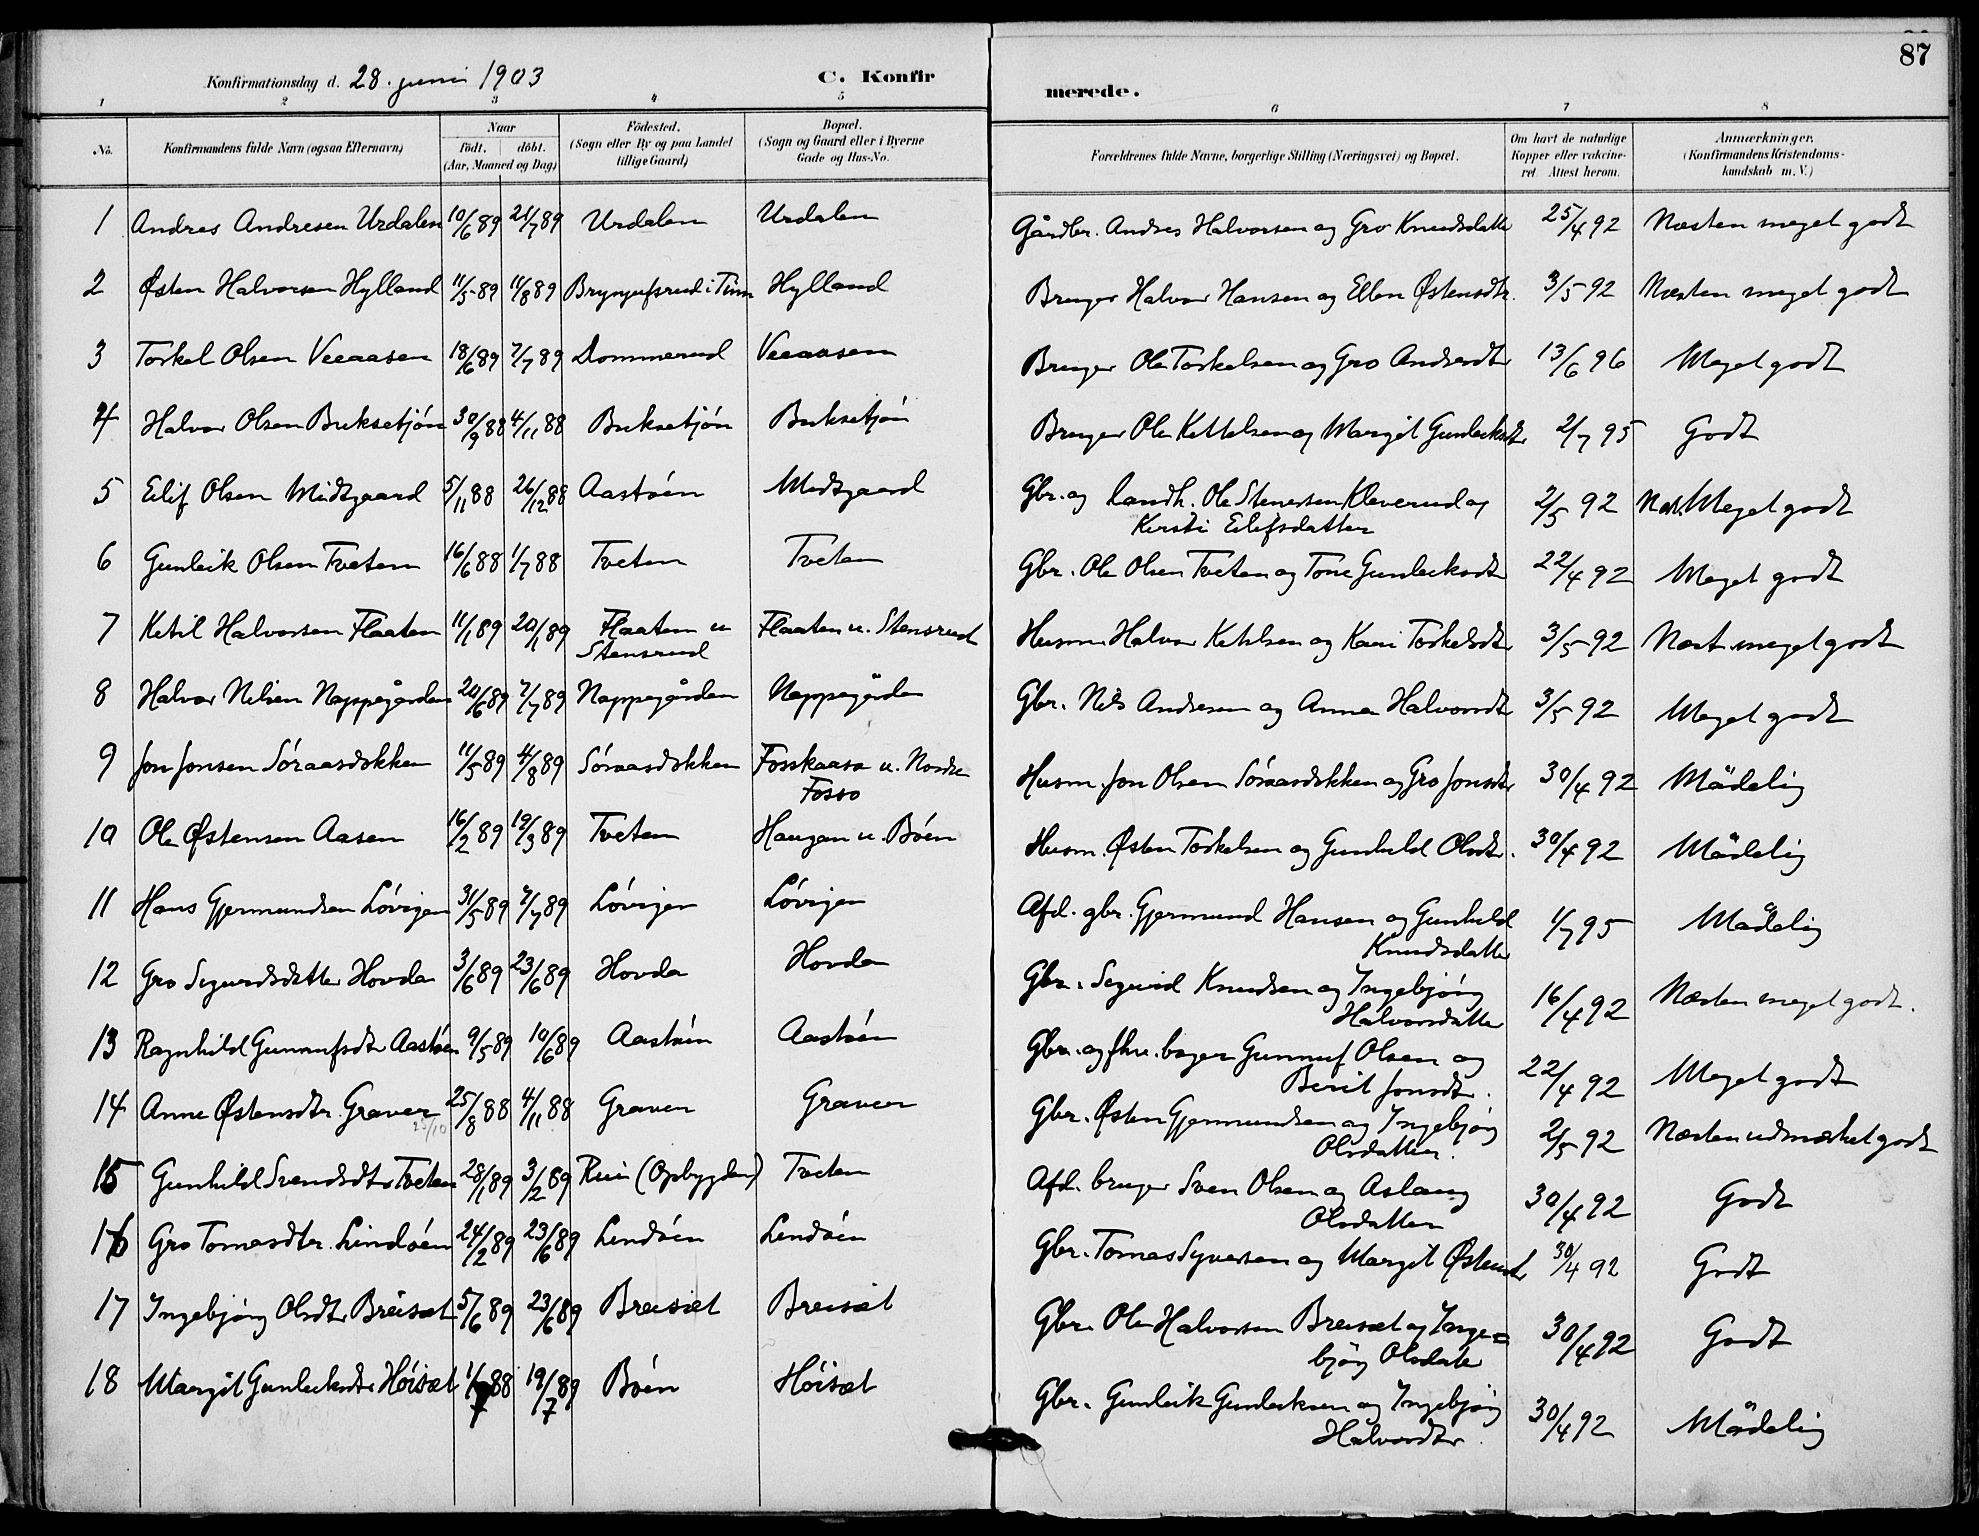 87
Konfirmationsdag d. 28. juni 1903
C. Konfir
merede.
1 2 3 4 5 6 7 8
No. Konfirmandens fulde Navn (ogsaa Efternavn) Naar födt. döbt. (Aar, Maaned og Dag) Födested. (Sogn eller By og paa Landet tillige Gaard) Bopæl. (Sogn og Gaard eller i Byerne Gade og Hus-No. Forældrenes fulde Navne, borgerlige Stilling (Næringsvei) og Bopæl. Om havt de naturlige Kopper eller vaksineret. Attest herom. Anmærkninger, (Konfirmandens Kristendomskundskab m. V.)
1 Andres Andresen Urdalen 10/6 89 21/7 89 Urdalen Urdalen Gårdbr. Andres Halvorsen og Gro Knudsdatter 25/4 92 Næsten meget godt
2 Østen Halvorsen Hylland 11/5 89 11/8 89 Brynjufsrud i Tinn Hylland Bruger Halvor Hansen og Ellen Østensdtr. 3/5 92 Næsten meget godt
3 Torkel Olsen Veeaasen 18/6 89 7/7 89 Dommerud Veeaasen Bruger Ole Torkelsen og Gro Andersdtr 13/6 96 Meget godt
4 Halvor Olsen Buksetjøn 30/9 88 4/11 88 Buksetjøn Buksetjøn Bruger Ole Kittelsen og Margit Gunleiksdtr 2/7 95 Godt
5 Eilif Olsen Midtgaard 5/11 88 26/12 88 Aastøen Midtgaard Gbr. og Landh. Ole Stenersen Kleverud og
Kirsti Eilefsdatter 2/5 92 Næst. Meget godt
6 Gunleik Olsen Tveten 16/6 88 1/7 88 Tveten Tveten Gbr. Ole Olsen Tveten og Tone Gunleiksdtr 22/4 92 Meget godt
7 Ketil Halvorsen Flaaten 11/1 89 20/1 89 Flaaten u Stensrud Flaaten u. Stensrud Husm. Halvor Ketilsen og Kari Torkelsdtr 3/5 92 Næst. meget godt
8 Halvor Nilsen Nappegården 20/6 89 7/7 89 Nappegården Nappegården Gbr. Nils Andresen og Anne Halvorsdtr 3/5 92 Meget godt
9 Jon Jonsen Söraasdokken 11/5 89 4/8 89 Söraasdokken Fosskaasa u. Nordre
Fosso Husm. Jon Olsen Söraasdokken og Gro Jonsdtr 30/4 92 Mådelig
10 Ole Østensen Aasen 16/2 89 19/3 89 Tveten Haugan u. Böen Husm. Østen Torkelsen og Gunhild Olsdtr. 30/4 92 Mådelig
11 Hans Gjermundsen Lövigen 31/5 89 7/7 89 Lövigen Lövigen Afd. gbr. Gjermund Hansen og Gunhild
Knudsdatter 1/7 95 Mådelig
12 Gro Sigurdsdatter Hovda 3/6 89 23/6 89 Hovda Hovda Gbr. Sigurd Knudsen og Ingebjörg
Halvorsdatter 16/4 92 Næsten meget godt.
13 Ragnhild Gunnufsdtr Aastöen 9/5 89 10/6 89 Aastöen Aastöen Gbr. og fhv. bager Gunnuf Olsen og
Berit Jonsdtr. 22/4 92 Meget godt
14 Anne Østensdtr. Graver 25/8 88 4/11 88 Graven Graver
25/10
Gbr. Østen Gjermundsen og Ingebjörg
Olsdatter. 2/5 92 Næsten udmærket godt
15 Gunhild Svendsdtr Tveten 28/1 89 3/2 89 Ruii (Opbygden) Tveten Afd. bruger Sven Olsen og Aslaug
Olsdatter 30/4 92 Godt
16 Gro Tomasdtr. Lindöen 24/2 89 23/6 89 Lindöen Lindöen Gbr. Tomas Syversen og Margit Østensdtr 30/4 92 Godt
17 Ingebjörg Olsdtr Breisæt 5/6 89 23/6 89 Breisæt Breisæt Gbr. Ole Halvorsen Breisæt og Inge=
björg Olsdatter 30/4 92 Godt
18 Margit Gunleiksdtr Höisæt 1/7 88 19/7 89 Böen Höisæt Gbr. Gunleik Gunleiksen og Ingebjörg
Halvorsdtr. 30/4 92 Mådelig